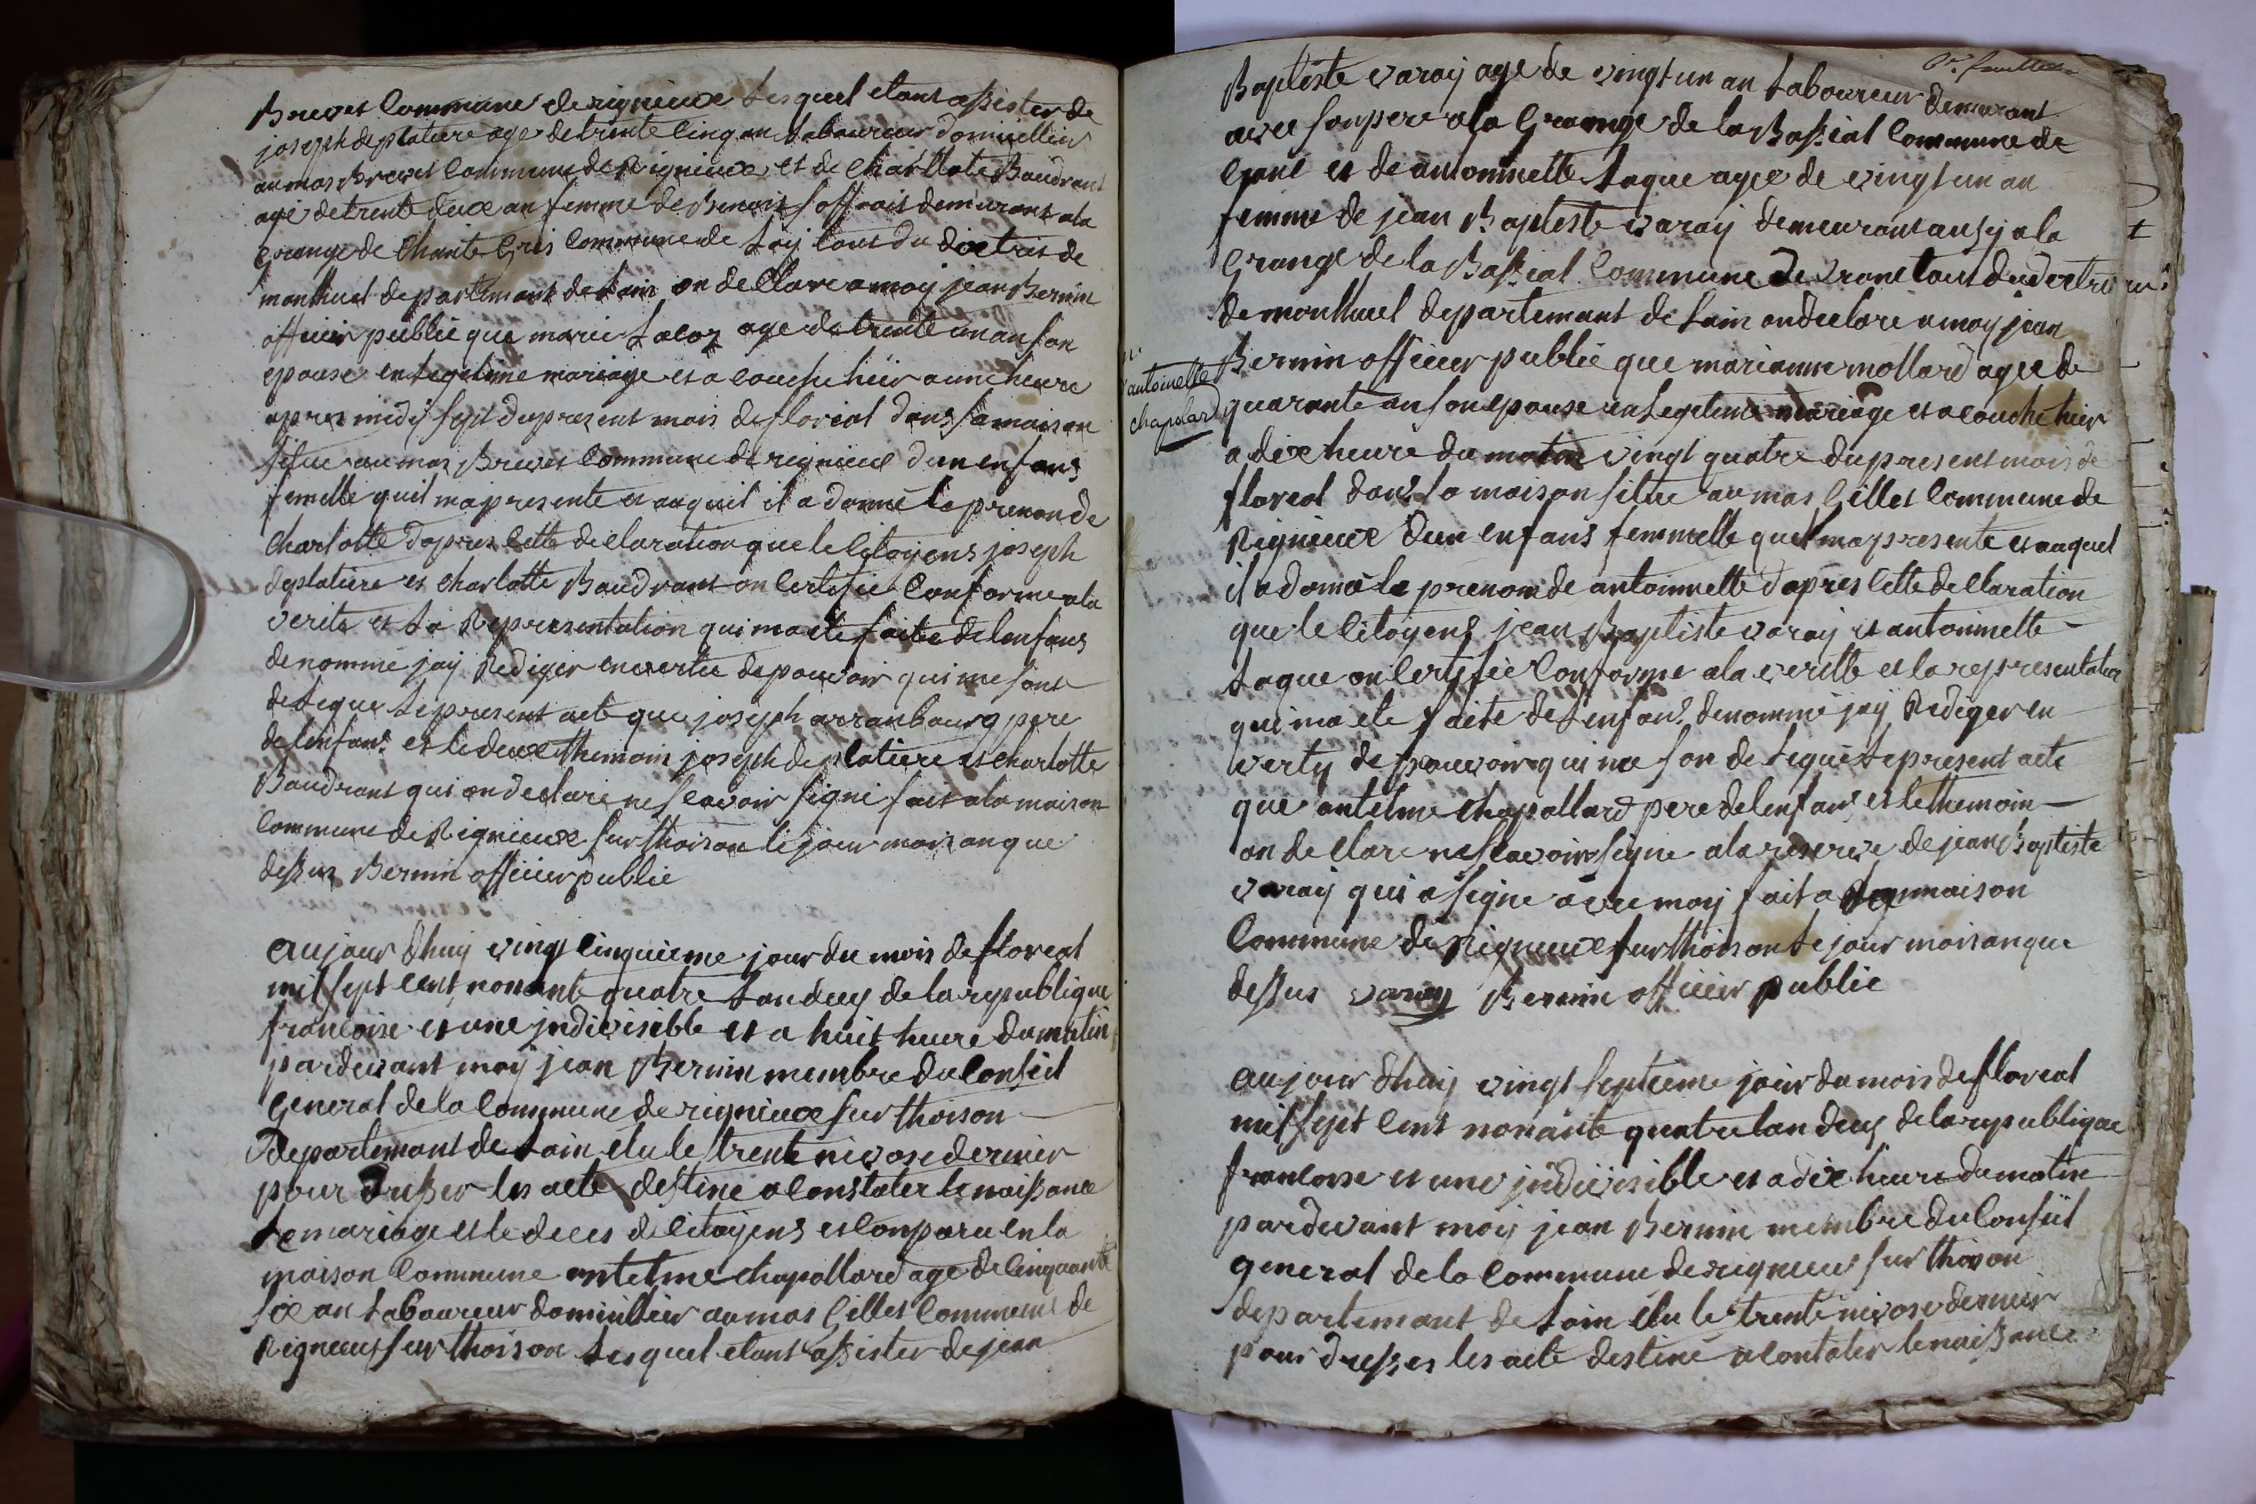 Brevet commune de rignieux lesquel etant assister de
joseph deplatiere age de trente cinq an laboureur domicillier
au mas Brevet commune de Rignieux et de charllote Baudrant
agé de trente deux an femme de Benoit soffrait demurant a la
grange de chante Gris commune de Loÿ tous du dixtris de
montluel departemant de Lain on decllare a moy jean Bernin
officier publie que marie Lacoz age de trente un an son
epouse en Legitime mariage et a couche hiir a une heure
apres midÿ sept du present mois de floreal dans sa maison
situe au mas Brevet commune de rignieux d'un enfans
femelle quil ma presente et auquil il a donné le prenon de
charlotte d'apres cette declaration que le citoyens joseph
deplatiere et charlotte Baudrant on certifié conforme a la
verite et la Representation qui ma eté faite de lenfans
denommé jaÿ Rediger en vertu de pouvoir qui me sont
delegue le present acte que joseph arranbourg pere
de lenfans et le deux themoin joseph deplatiere et charlotte
Baudrant qui on declaré ne scavoir signé fait a la maison
commune de Rignieux sur thoison le jour mois an que
dessus Bernin officier publie
aujour dhuy vingt cinquieme jour du mois de floreal
mil sept cent nonante quatre Lan deuy de la republique
francoise et une jndivisible et a huit heure du matin
par devant moÿ jean Bernin membre du conseil
General de la commune de rignieux sur thoison
Departemant de Lain elu le trente nivose dernier
pour dresser les acte destine a constater le naissance
Le mariage et le deces de citoyens est conparu en la
maison commune antelme chapollard age de cinquante
six an Laboureur domicillier au mas Gillet commune de
Rigneux sur thoison Lesquel etant assister de jean
Baptiste varaÿ agé de vingt un an Laboureur demurant
avec son pere a la Grange de la Bassial commune de
crané et de antoinnette Laque agee de vingt un an
femme de jean Baptiste varaÿ demeurant ausÿ a la
Grange de la Bassial commune de crane tous du distri
de montluel departemant de Lain on declare a moy jean
antoinette
chapolard
Bernin officier publié que marianne mollard agee de
quarante an son epouse en Legetime mariage et a couché hier
a dix heure du matin vingt quatre du present mois de
floreal dans sa maison situe au mas Gillet commune de
Rignieux d'un enfans femmelle quil ma presente et auquel
il a donné le prenom de antoinnette d'apres cette decllaration
que le citoyens jean Baptiste varaÿ et antoinnette
Laque on certifié conforme a la veritte et la representation
qui ma ete faite de Lenfans denommé jaÿ Rediger en
verty de pouvoir qui me son delegué le present acte
que antelme chapollard pere de lenfans et le themoin
on decllare ne scavoir signe a la reserve de jean Baptiste
varaÿ qui a signe avec moÿ fait a la maison
commune de Rigneux sur thoison Le jour mois an que
dessus varaÿ Bernin officier publie
aujour dhuÿ vingt septieme jour du mois de floreal
mil sept cent nonante quatre lan deuy de la republique
francoise et une jndivisible et a dix heure du matin
par devant moÿ jean Bernin membre du conseil
general de la commune de rigneux sur thoison
departemant de Lain élu le trente nivose dernier
pour dresser les acte destiné a contater le naissance